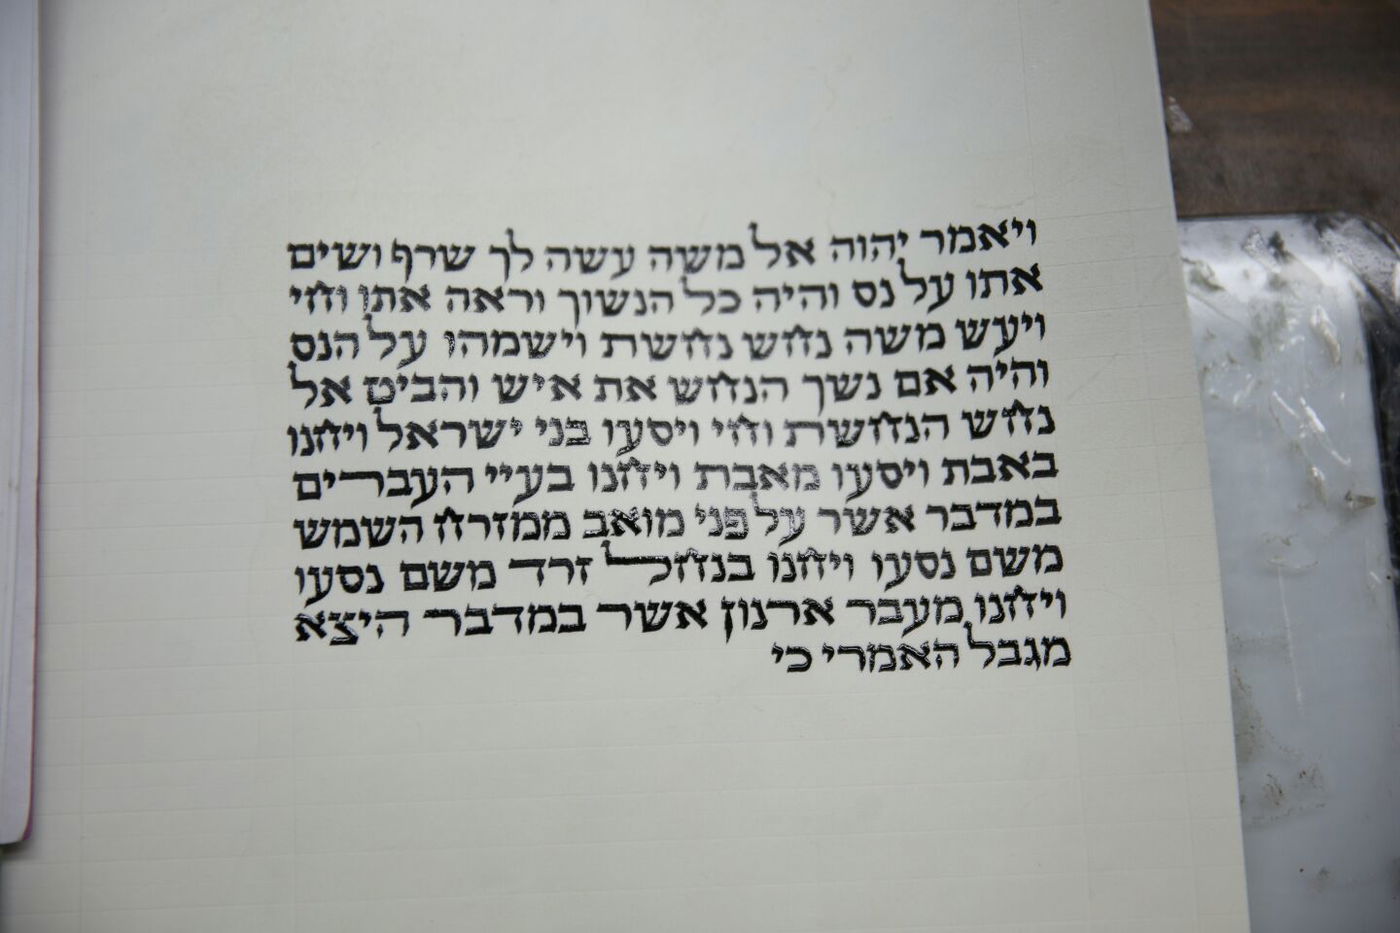 ויאמר יהוה אל משה עשה לך שרף ושים
אתו על נס והיה כל הנשוך וראה אתו וחי
ויעש משה נחש נחשת וישמהו על הנס
והיה אם נשך הנחש את איש והביט אל
נחש הנחשת וחי ויסעו בני ישראל ויחנו
באבת ויסעו מאבת ויחנו בעיי העברים
במדבר אשר על פני מואב ממזרח השמש
משם נסעו ויחנו בנחל זרד משם נסעו
ויחנו מעבר ארנון אשר במדבר היצא
מגבל האמרי כי